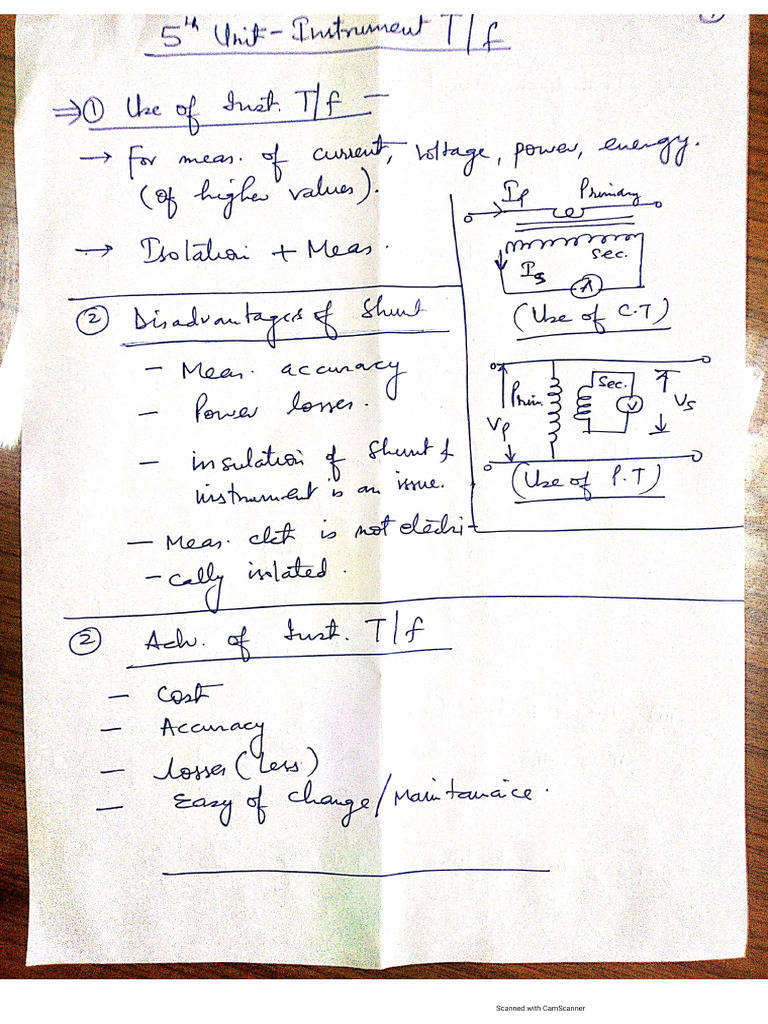 5th Unit - Instrument T/f
⇒ ① Use of Inst. T/f —
→ For meas. of current, voltage, power, energy.
(of higher values).
→ Isolation + Meas.
Ip Primary
Sec.
Is
A
(Use of C.T)
Prim. Sec. V
Vp Vs
(Use of P.T)
② Disadvantages of Shunt
— Meas. accuracy
— Power losses.
— insulation of Shunt &
instrument is an issue.
— Meas. ckt is not electri-
— cally isolated.
② Adv. of Inst. T/f
— Cost
— Accuracy
— losses (Less)
— Easy of change/Maintanaice.
Scanned with CamScanner